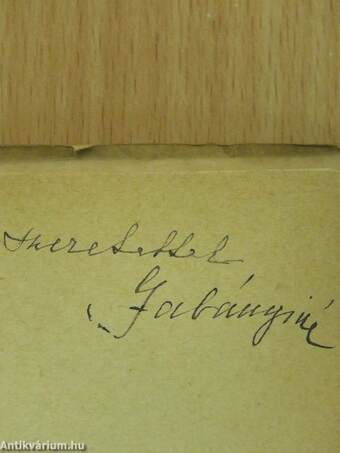 szeretettel
Gabányiné
Antikvárium.hu